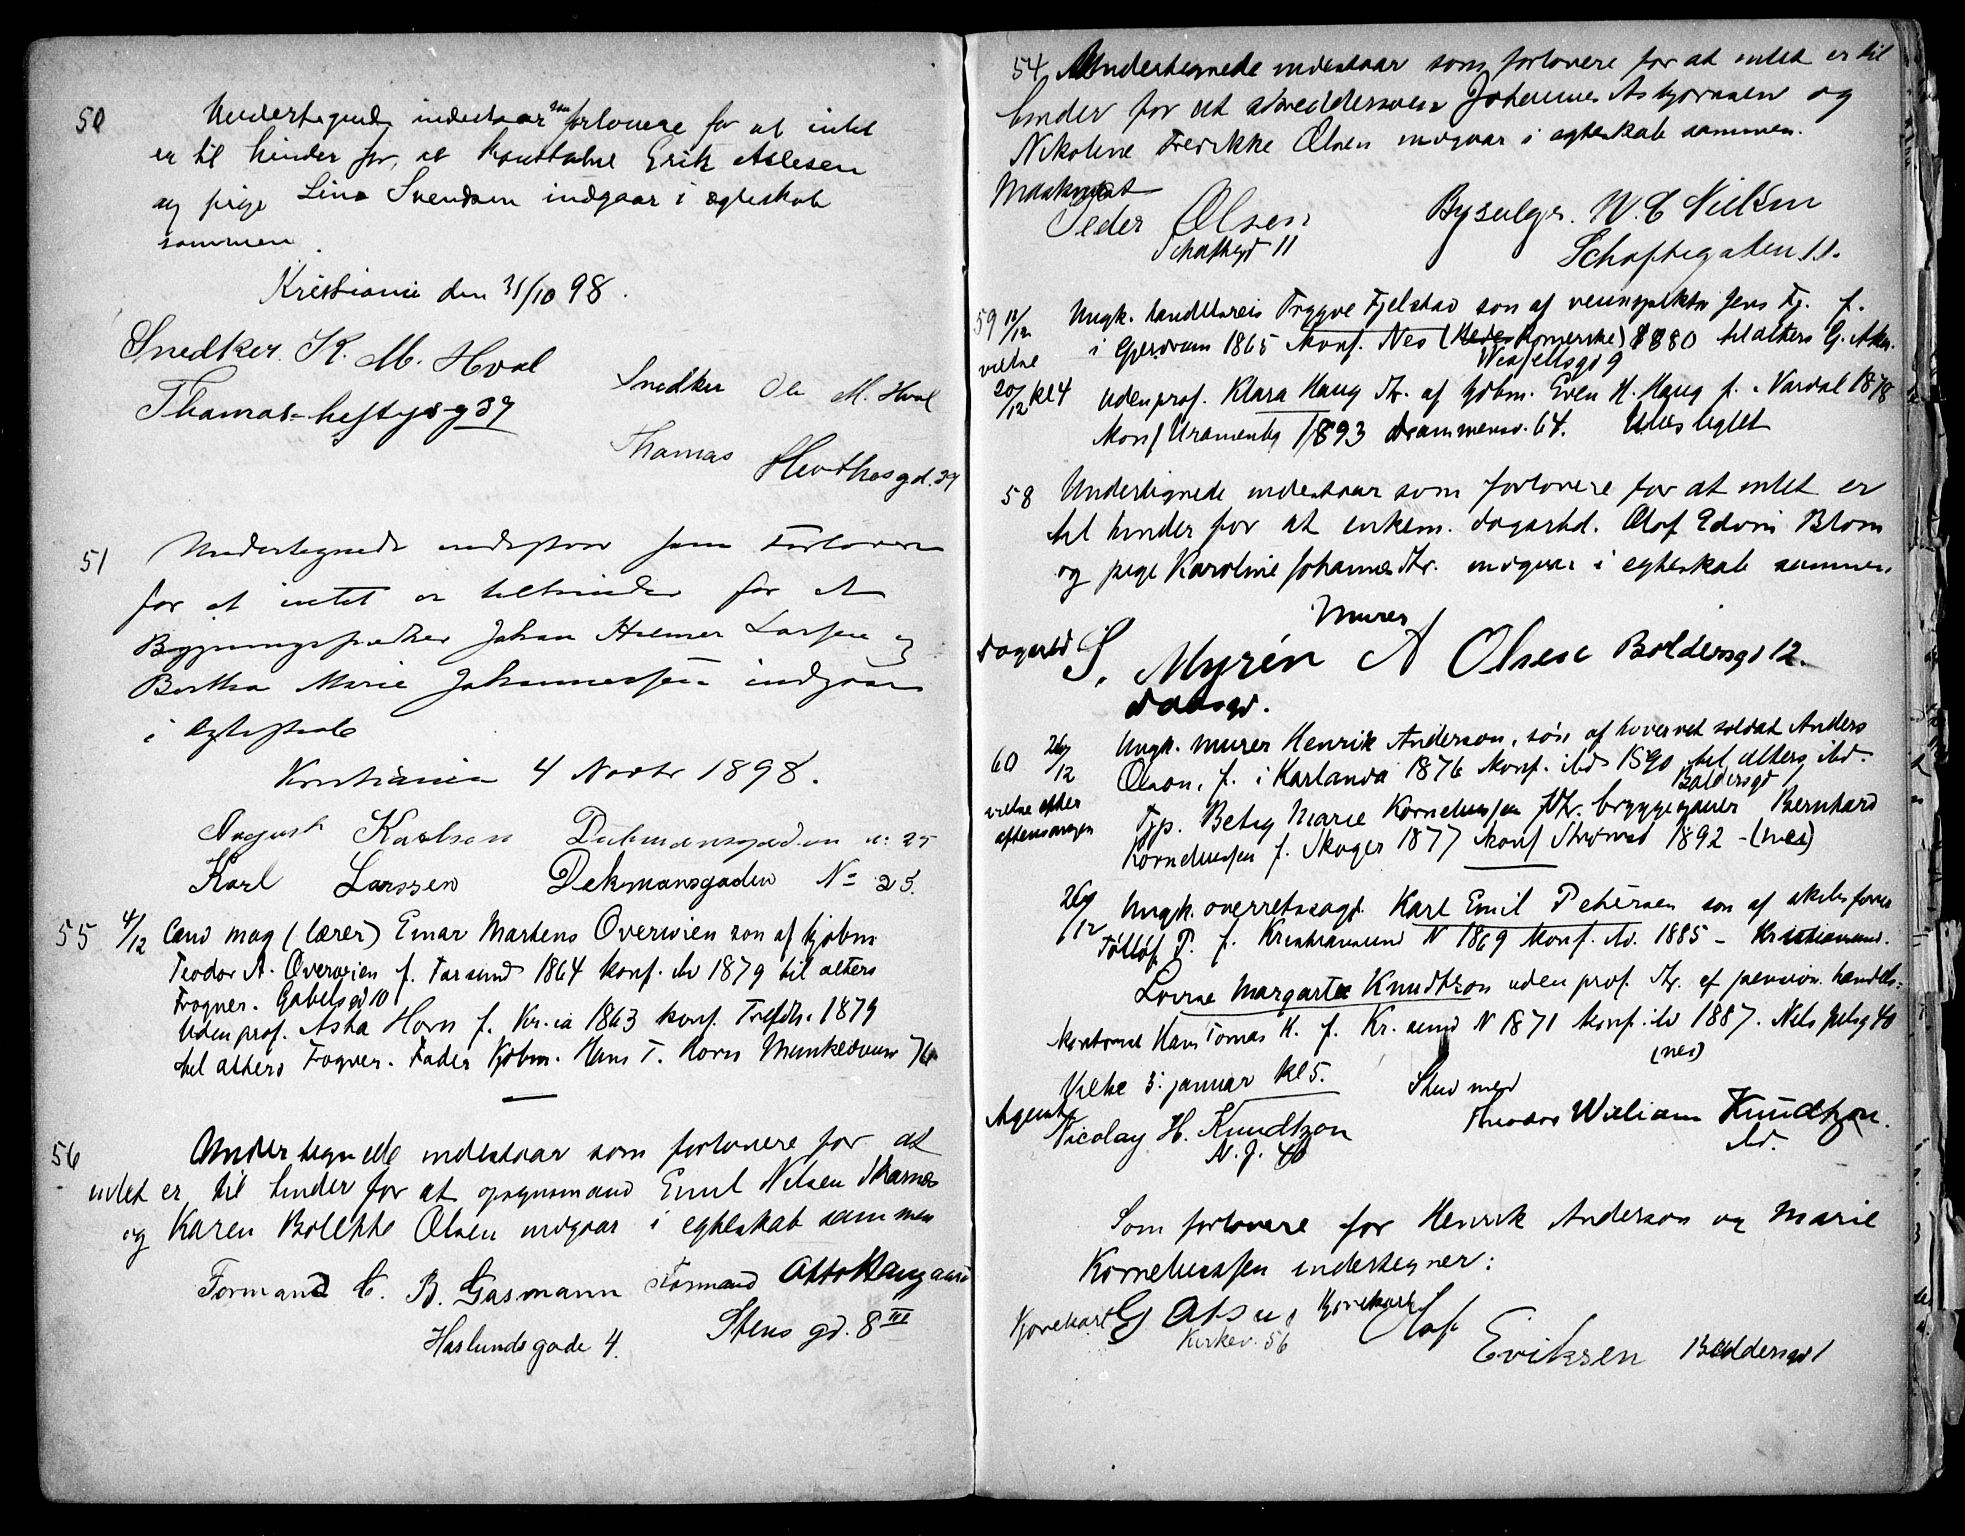 50 Undertegnede indestaar som forlovere for at intet
er til hinder for, at Konstabel Erik Aslesen
og pige Lina Svendsen indgaar i ægteskab
sammen.
Kristiania den 31/10 98.
Snedker K. M. Hval
Thomas-heftyes g 37
Snedker Ole M. Hval
Thomas Heftyes gd. 37
51 Undertegnede indestaar som Forlovere
for at intet er til hinder for at
Bygningssnedker Johan Hilmer Larsen og
Bertha Marie Johannessen indgaar
i Ægteskab
Kristiania 4 Novbr 1898.
August Karlsen Dekmansgaden n: 25
Karl Larssen Dekmansgaden No 25.
55 4/12 Cand mag (lærer) Einar Martens Overwien son af kjøbm.
Teodor A. Overwien f. Farsund 1864 konf. ibd 1879 til alters
Frogner. Gabelsgd 10
Uden prof. Asta Horn f. Kr.ia 1863 konf. Trefdh. 1879
til alters Frogner. Fader Kjøbm. Hans T. Horn Munkedveien 76
56 Undertegnede indestaar som forlovere for at
intet er til hinder for at opsynsmand Emil Nilsen Skarnes
og Karen Bolette Olsen indgaar i egteskab sammen
Formand C. B. Gasmann Formand Otto Haugaard
Haslunds gade 4. Stens gd. 8 III
54 Undertegnede indestaar som forlovere for at intet er til
hinder for at skreddersvend Johannes Asbjørnsen og
Nikoline Fredrikke Olsen indgaar i egteskab sammen.
Maskinist
Peder Olsen Byselger. W. C Nielsen
Schaftegd 11 Schaftegaten 11.
59 12/12 Ungk. handelsreis Trygve Fjelstad son af veiinspektør Jens Fj. f.
i Gjerdrum 1865 konf. Nes (Romerike) 1880 til alters G. Aker.
vielse Wesselsgd 9
20/12 kl 4 Uden prof. Klara Haug dtr. af gdbm. Even H. Haug f. i Vardal 1878
konf Uranienbg 1893 Drammensv. 64. Ubeslegtet
58 Undertegnede indestaar som forlovere for at intet er
til hinder for at enkem. dagarbd. Olof Edvin Blom
og pige Karoline Johannesdtr. indgaar i egteskab sammen.
Murer
Dagarbd S. Myrén A Olsen Baldersgd 12.
60 26/12 Ungk. murer Henrik Anderson, søn af hvervet soldat Anders
Olson, f. i Karlanda 1876 konf. ibd 1890 til alters ibd.
Baldersgd
vielse efter Tjp. Betsy Marie Korneliussen dtr. bryggegaver Bernhard
aftensangen Korneliussen f. Skoger 1877 konf Strømsø 1892 - (nei)
26/12 Ungk. overretssagf. Karl Emil Petersen son af skibsfører
Tolløf P. f. Kristiansund N 1869 konf. ibd. 1885 - Kristiansund.
Lovise Margarte Knudtzon uden prof. dtr. af pension. handels-
kontorist Hans Tomas K. f. Kr.sund N 1871 konf. ibd 1887. Nels Juelsg 40
(nei)
Vielse 5. januar kl 5. Stud med
Agent
Nicolay H. Knudtzon Theodor William Knudtzon.
N. J. 40 ibd.
Som forlovere for Henrik Anderson og Marie
Korneliussen undertegner:
Kjørekarl G Olsen Kjørekarl Olof
Kirkev. 56 Eriksen Baldersgd 1